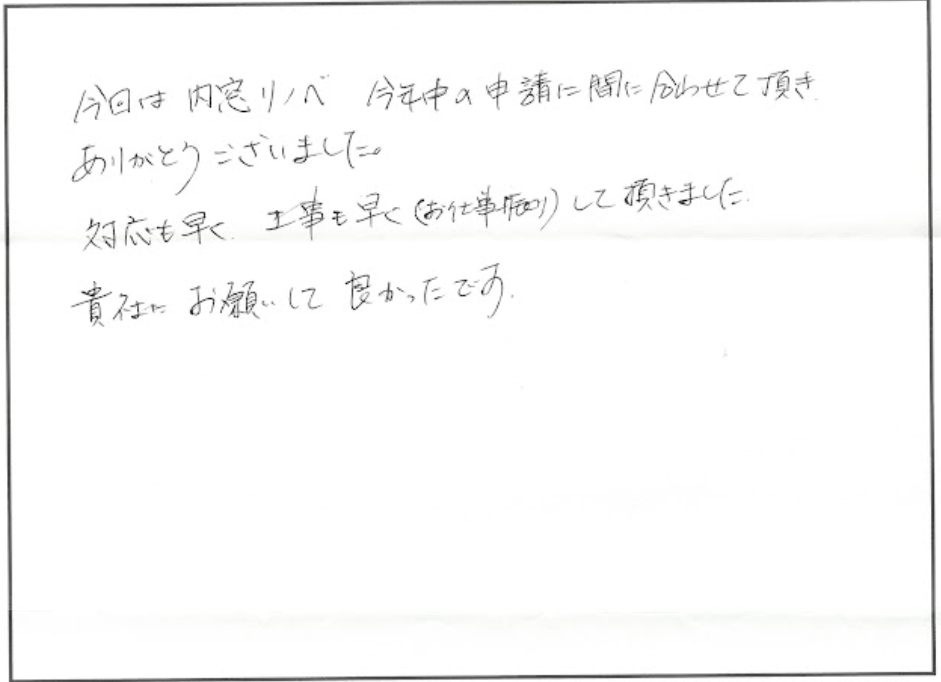 今回は 内窓リノベ 今年中の申請に間に合わせて頂き
ありがとうございました。
対応も早く 工事も早く(お仕事振り)して頂きました.
貴社に お願いして 良かったです.